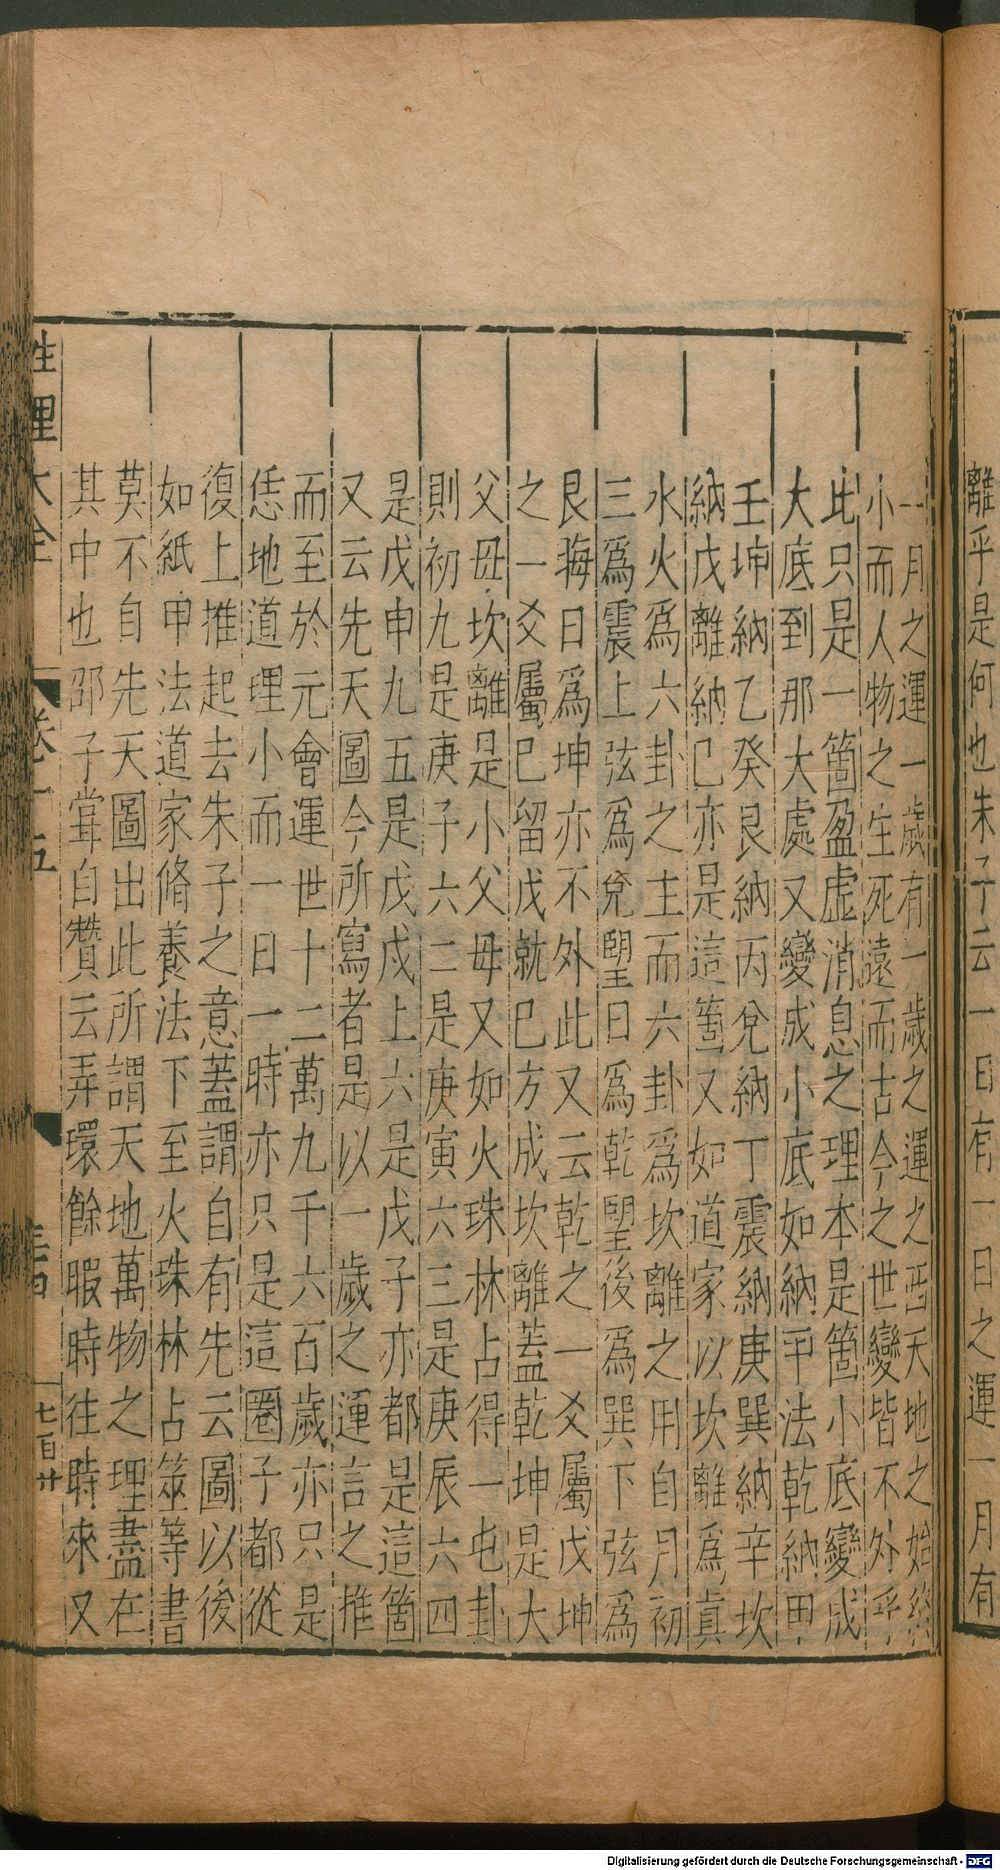 離乎是何也朱子云一日有一日之運一月有
一月之運一歲有一歲之運大而天地之始終
小而人物之生死遠而古今之世變皆不外乎
此只是一箇盈虛消息之理本是箇小底變成
大底到那大處又變成小底如納甲法乾納甲
壬坤納乙癸艮納丙兌納丁震納庚巽納辛坎
納戊離納己亦是這箇又如道家以坎離爲眞
水火爲六卦之主而六卦爲坎離之用自月初
三爲震上弦爲兌望日爲乾望後爲巽下弦爲
艮晦日爲坤亦不外此又云乾之一爻屬戊坤
之一爻屬巳留戊就巳方成坎離蓋乾坤是大
父母坎離是小父母又如火珠林占得一屯卦
則初九是庚子六二是庚寅六三是庚辰六四
是戊申九五是戊戌上六是戊子亦都是這箇
又云先天圖今所寫者是以一歲之運言之推
而至於元會運世十二萬九千六百歲亦只是
恁地道理小而一日一時亦只是這圈子都從
復上推起去朱子之意蓋謂自有先云圖以後
如紙甲法道家脩養法下至火珠林占筮等書
莫不自先天圖出此所謂天地萬物之理盡在
其中也邵子甞自贊云弄環餘暇時往時來又
性理大全 卷十五 三十四 七百廿
Digitalisierung gefördert durch die Deutsche Forschungsgemeinschaft - DFG